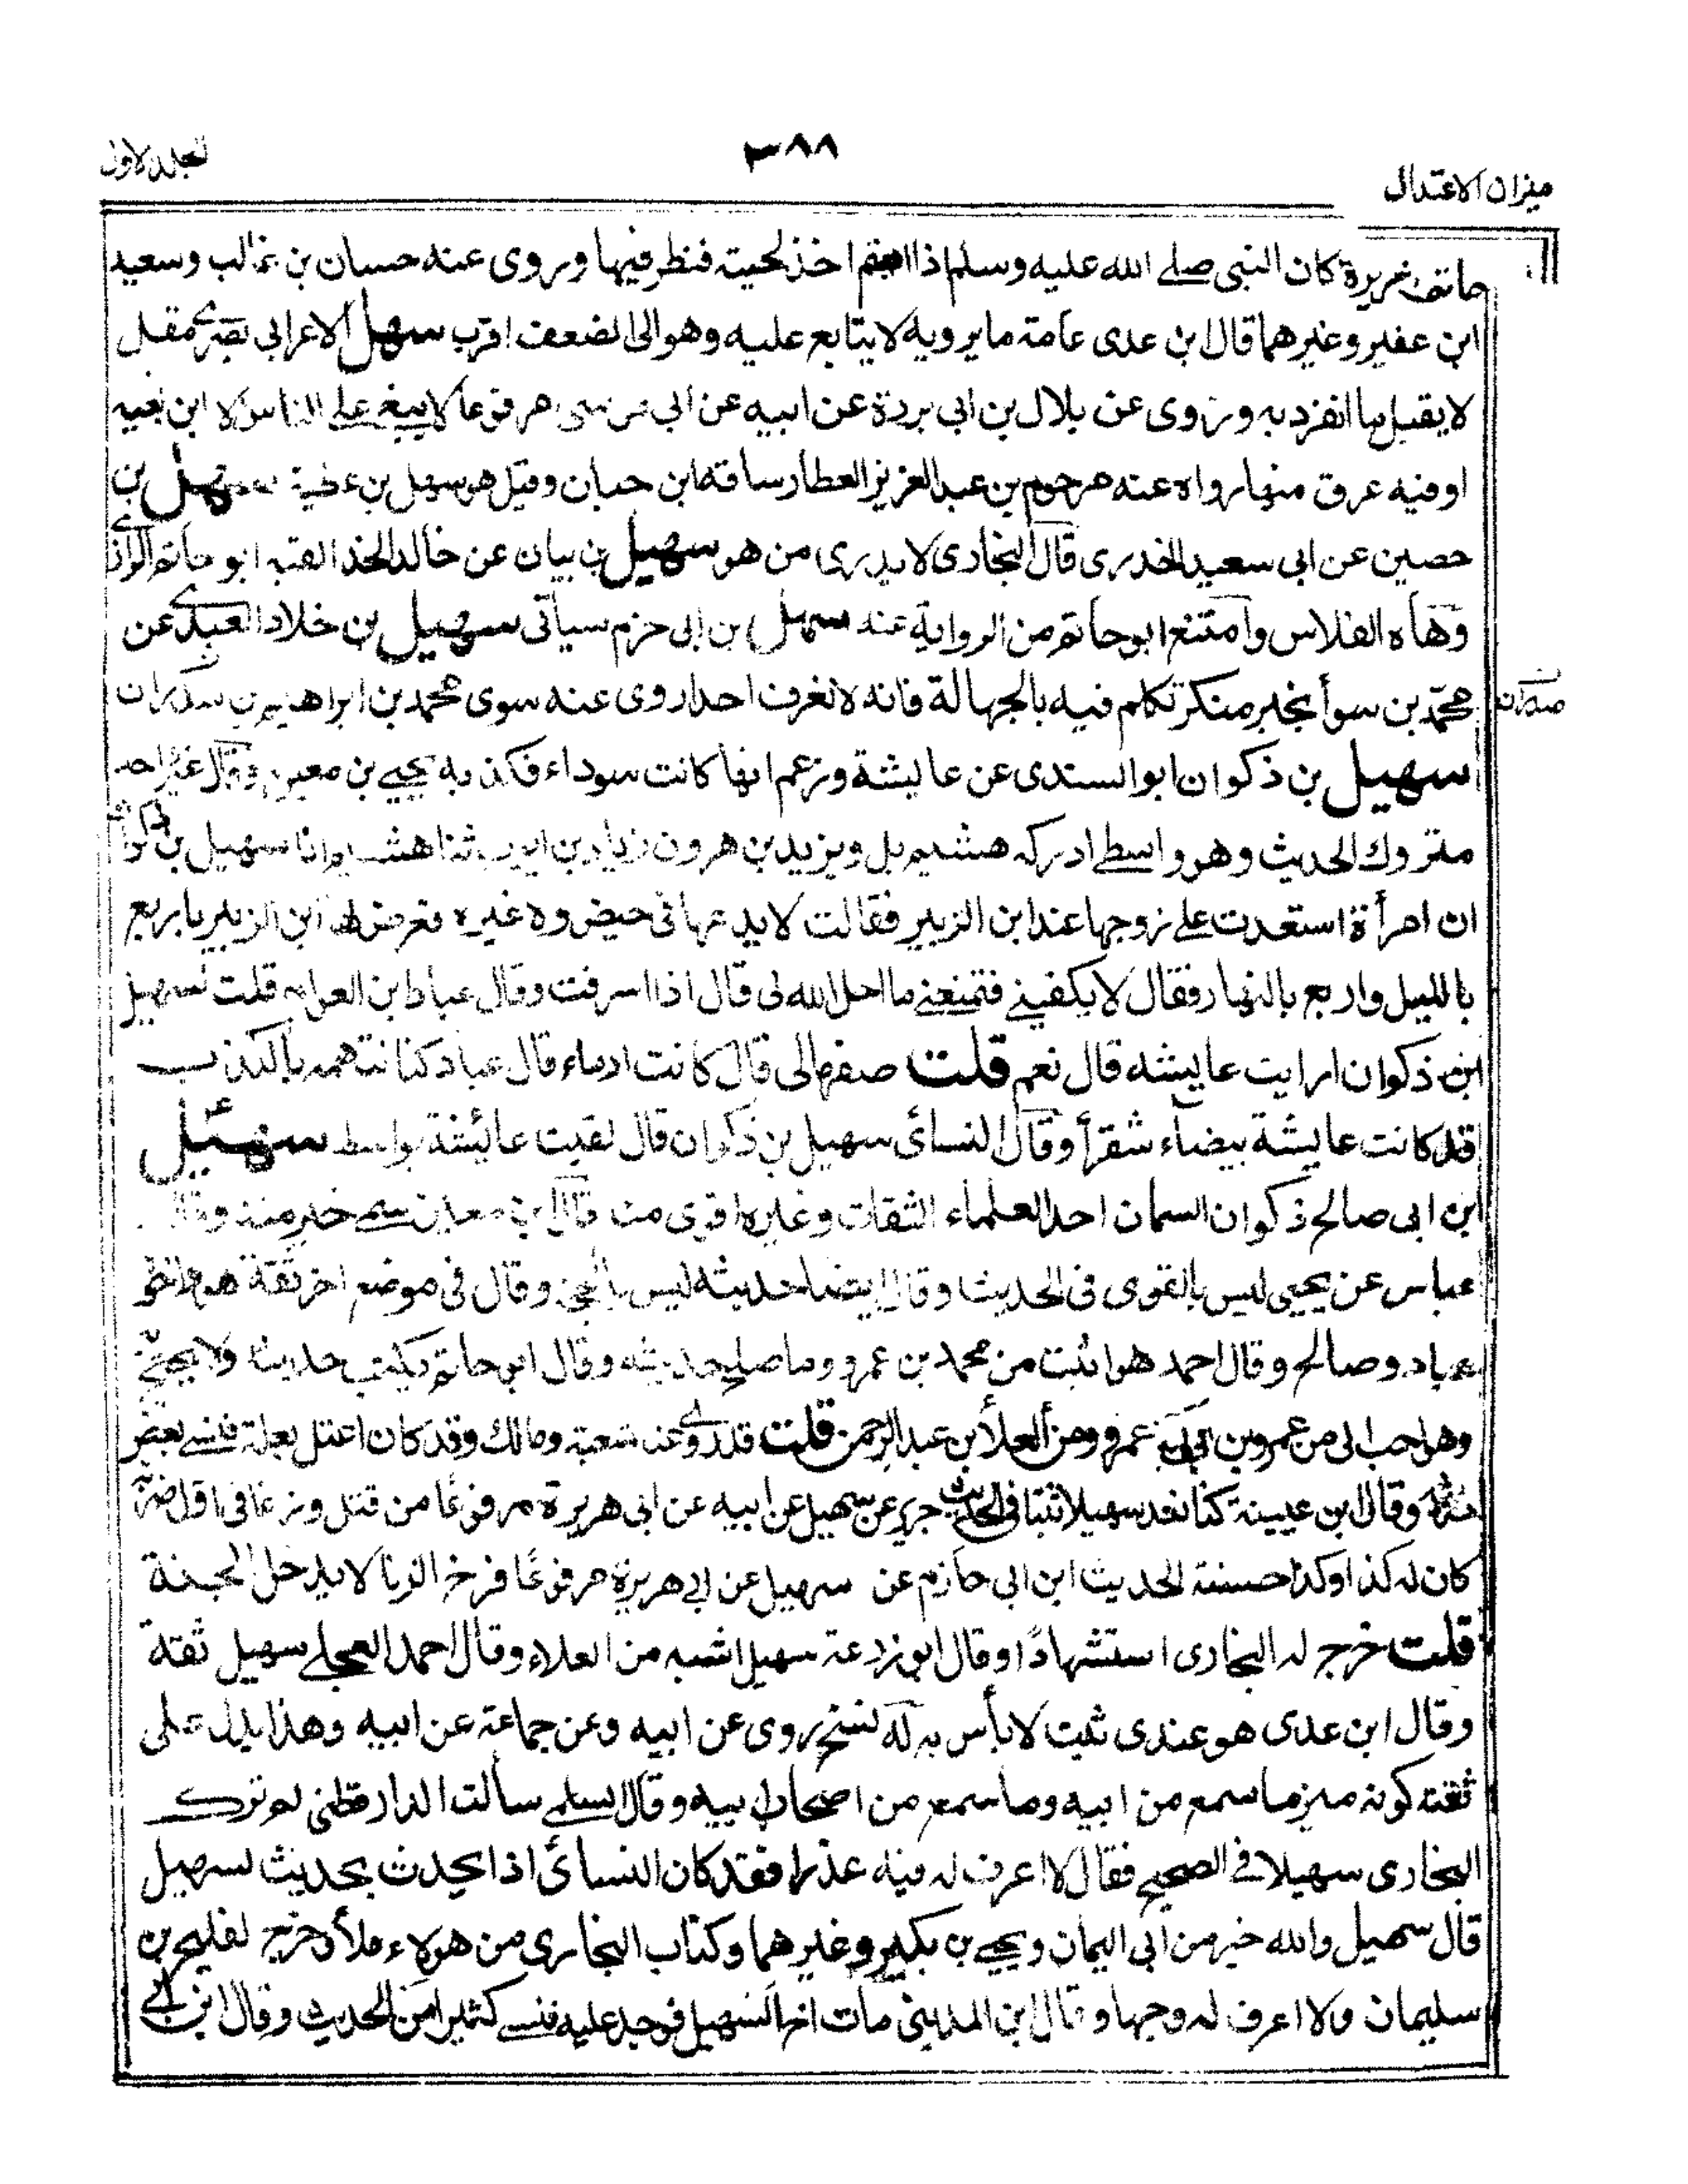 المجلد الاول
٣٨٨
ميزان الاعتدال
كان النبى صلے الله عليه وسلم اذا اهتم اخذ لحيته فنظر فيها وروى عنه حسان بن غالب وسعيد
ابن عفير وغيرهما قال ابن عدى عامة ما يرويه لا يتابع عليه وهو الى الضعف اقرب سهل الاعرابى بصرى مقبل
لا يقبل ما انفرد به وروى عن بلال بن ابى بردة عن ابيه عن ابى موسى مرفوعا لا يبغے على الناس الا ابن بغيه
او فيه عرق منها رواه عنه مرحوم بن عبد العزيز العطار ساقه ابن حبان وقيل هو سهل بن عطية سهيل بن
حصين عن ابى سعيد الخدرى قال البخارى لا يدرى من هو سهيل بن بيان عن خالد الحذا لقيه ابو حاتم الرازى
وهاه الفلاس وامتنع ابو حاتم من الرواية عنه سهيل بن ابى حزم سيأتى سهيل بن خلاد العبدى عن
محمد بن سوأ بخبر منكر تكلم فيه بالجهالة فانه لا نعرف احدا روى عنه سوى محمد بن ابراهيم بن سدران
صدران
سهيل بن ذكوان ابو السندى عن عايشة وزعم انها كانت سوداء فكذبه يحيے بن معين وقال غير احد
متروك الحديث وهو واسطے ادركه هشيم بل ويزيد بن هرون زياد بن ايوب ثنا هشيم انا سهيل بن ذكوان
ان امرأة استعدت علے زوجها عند ابن الزبير فقالت لا يدعها فى حيض ولا غيره فعرض لها ابن الزبير باربع
بالليل واربع بالنهار فقال لا يكفينے فتمنعنے ما احل الله لى قال اذا اسرفت وقال عباد بن العوام قلت لسهيل
ابن ذكوان ارايت عايشه قال نعم قلت صفها لى قال كانت ادماء قال عباد كنا نتهمه بالكذب
قد كانت عايشة بيضاء شقرأ وقال النسائى سهيل بن ذكوان قال لقيت عائشة بواسط سهيل
ابن ابى صالح ذكوان السمان احد العلماء الثقات وغيره اقوى منه قال ابن معين سمى خير منه وقال
عباس عن يحيى ليس بالقوى فى الحديث وقال ايضا حديثه ليس بالحجة وقال فى موضع اخر ثقة هو واخواه
عباد وصالح وقال احمد هو اثبت من محمد بن عمرو وما اصلح حديثه وقال ابو حاتم يكتب حديثه ولا يحتج
وهو احب الى من عمرو بن ابى عمرو ومن العلأ بن عبد الرحمن قلت قد روى عنه شعبة ومالك وقد كان اعتل بعلة فنسے بعض
حديثه وقال ابن عيينة كنا نعد سهيلا ثبتا فى الحديث جرير عن سهيل عن ابيه عن ابى هريرة مرفوعًا من قتل وزغا فى اول ضربة
كان له كذا وكذا حسنة الحديث ابن ابى حازم عن سهيل عن ابے هريرة مرفوعًا فرخ الزنا لا يدخل الجنة
قلت خرج له البخارى استشهادًا وقال ابو زرعة سهيل اشبه من العلاء وقال احمد العجلے سهيل ثقة
وقال ابن عدى هو عندى ثبت لا بأس به له نسخ روى عن ابيه وعن جماعة عن ابيه وهذا يدل على
ثقته كونه ميز ما سمع من ابيه وما سمع من اصحاب ابيه وقال السلمے سألت الدارقطنى لم ترك
البخارى سهيلا فے الصحيح فقال لا اعرف له فيه عذرا فقد كان النسائى اذا يحدث بحديث لسهيل
قال سهيل والله خير من ابى اليمان ويحيے بن بكير وغيرهما وكتاب البخارى من هولاء ملأ وخرج لفليح بن
سليمان ولا اعرف له وجها وقال ابن المدينى مات اخ لسهيل فوجد عليه فنسے كثيرا من الحديث وقال ابن ابے